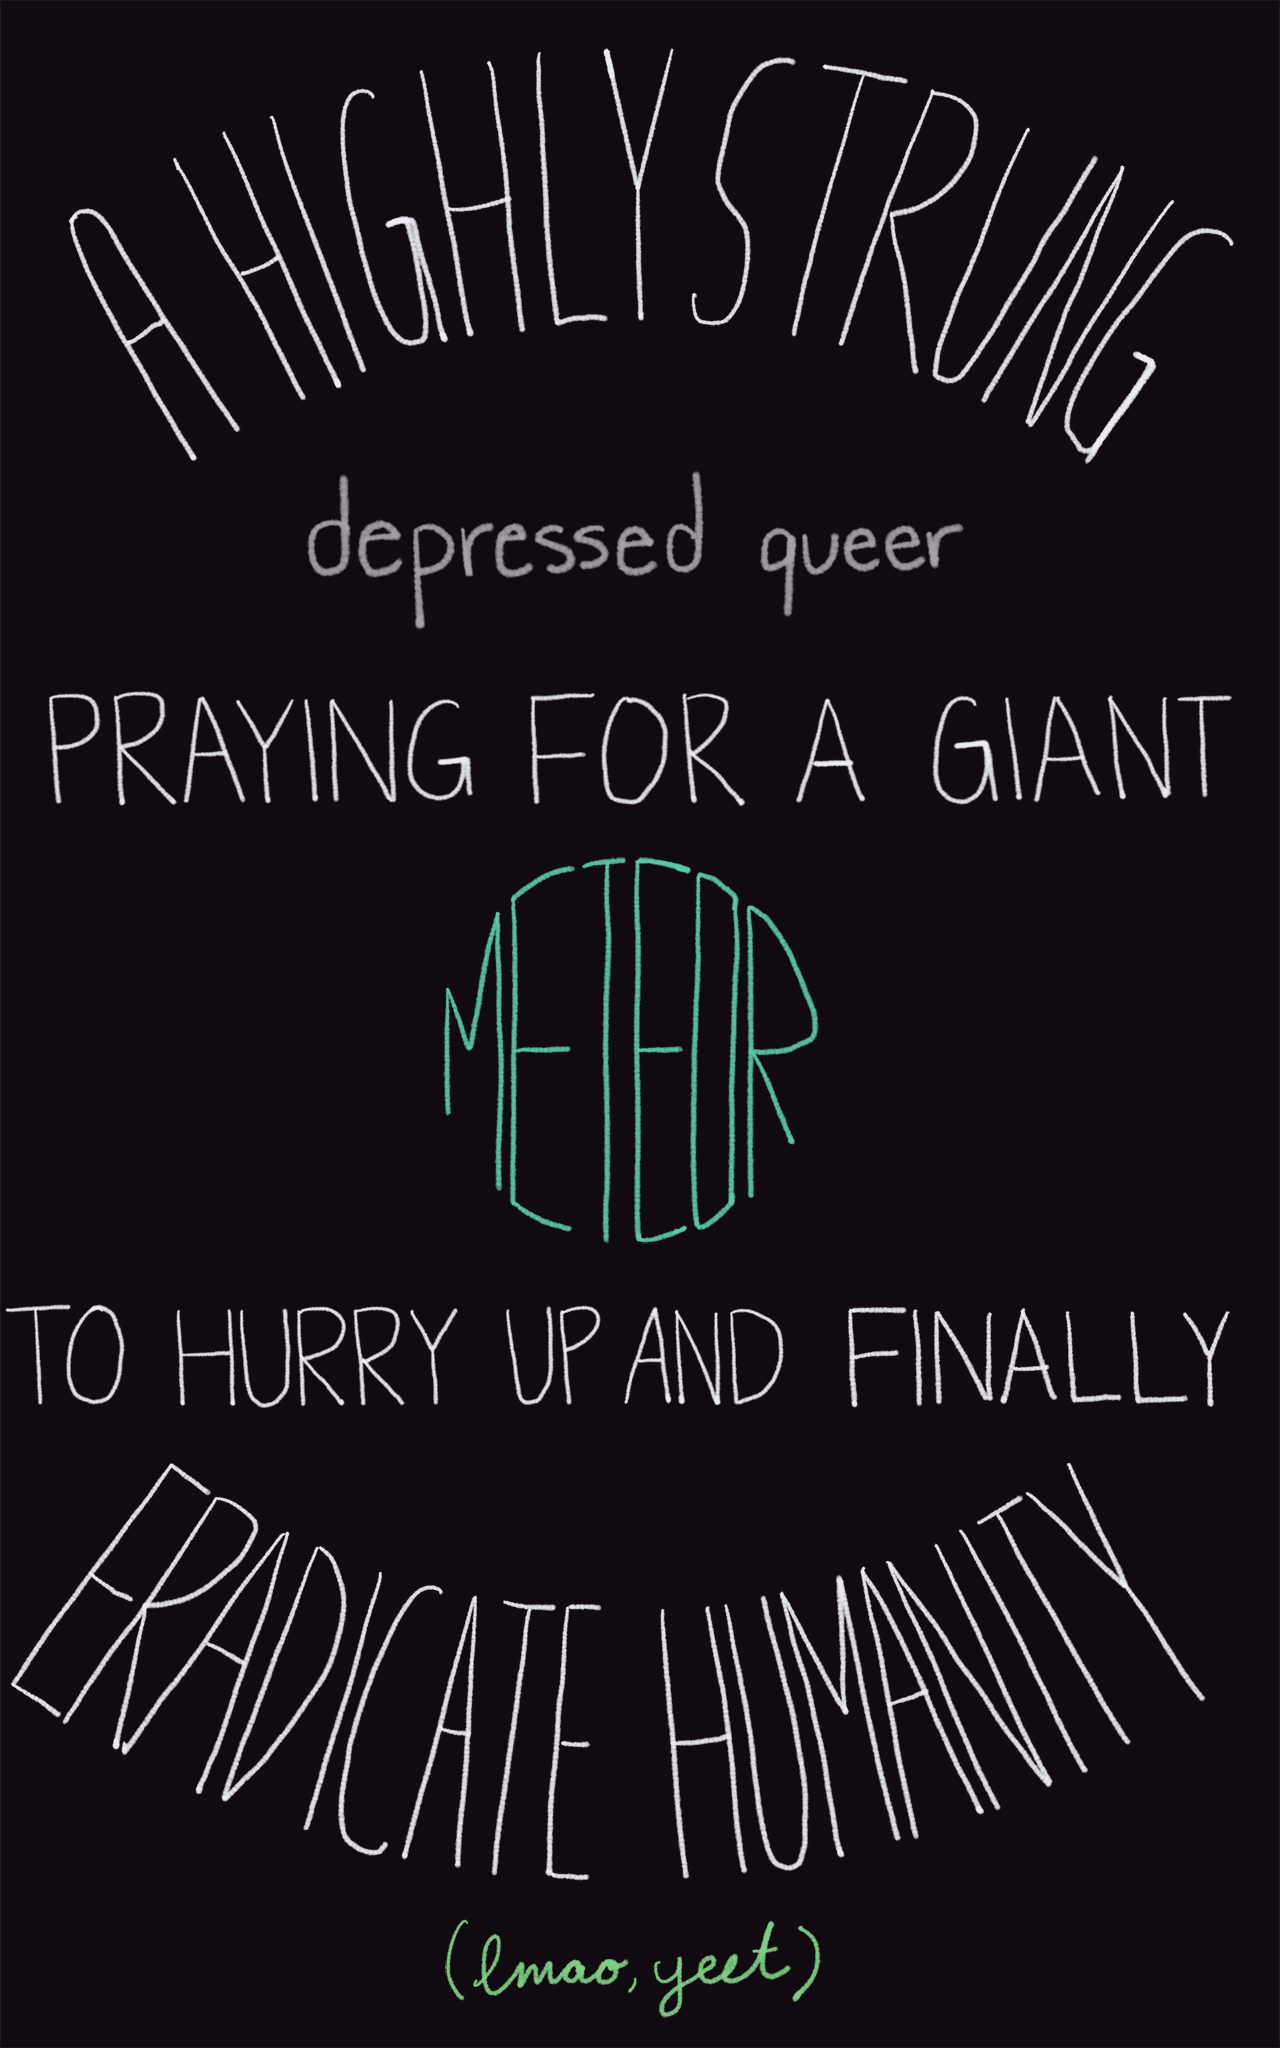 A HIGHLY STRUNG
depressed queer
PRAYING FOR A GIANT
METEOR
TO HURRY UP AND FINALLY
ERADICATE HUMANITY
(lmao, yeet)